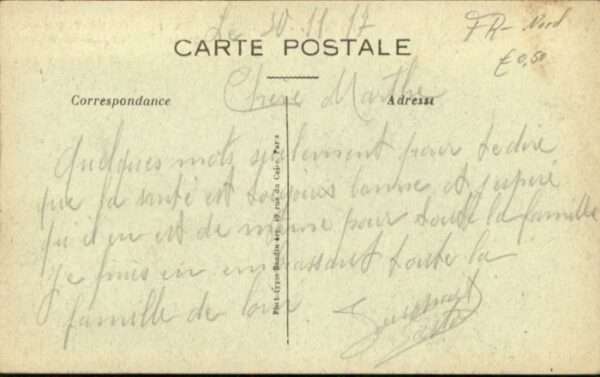 Le 30.11.17
FR- Nord
£ 0,50
CARTE POSTALE
Correspondance
Adresse
Chère Marthe
Quelques mots seulement pour te dire
que la santé est toujours bonne et j'espère
qu'il en est de même pour toute la famille
Je finis en embrassant toute la
famille de loin